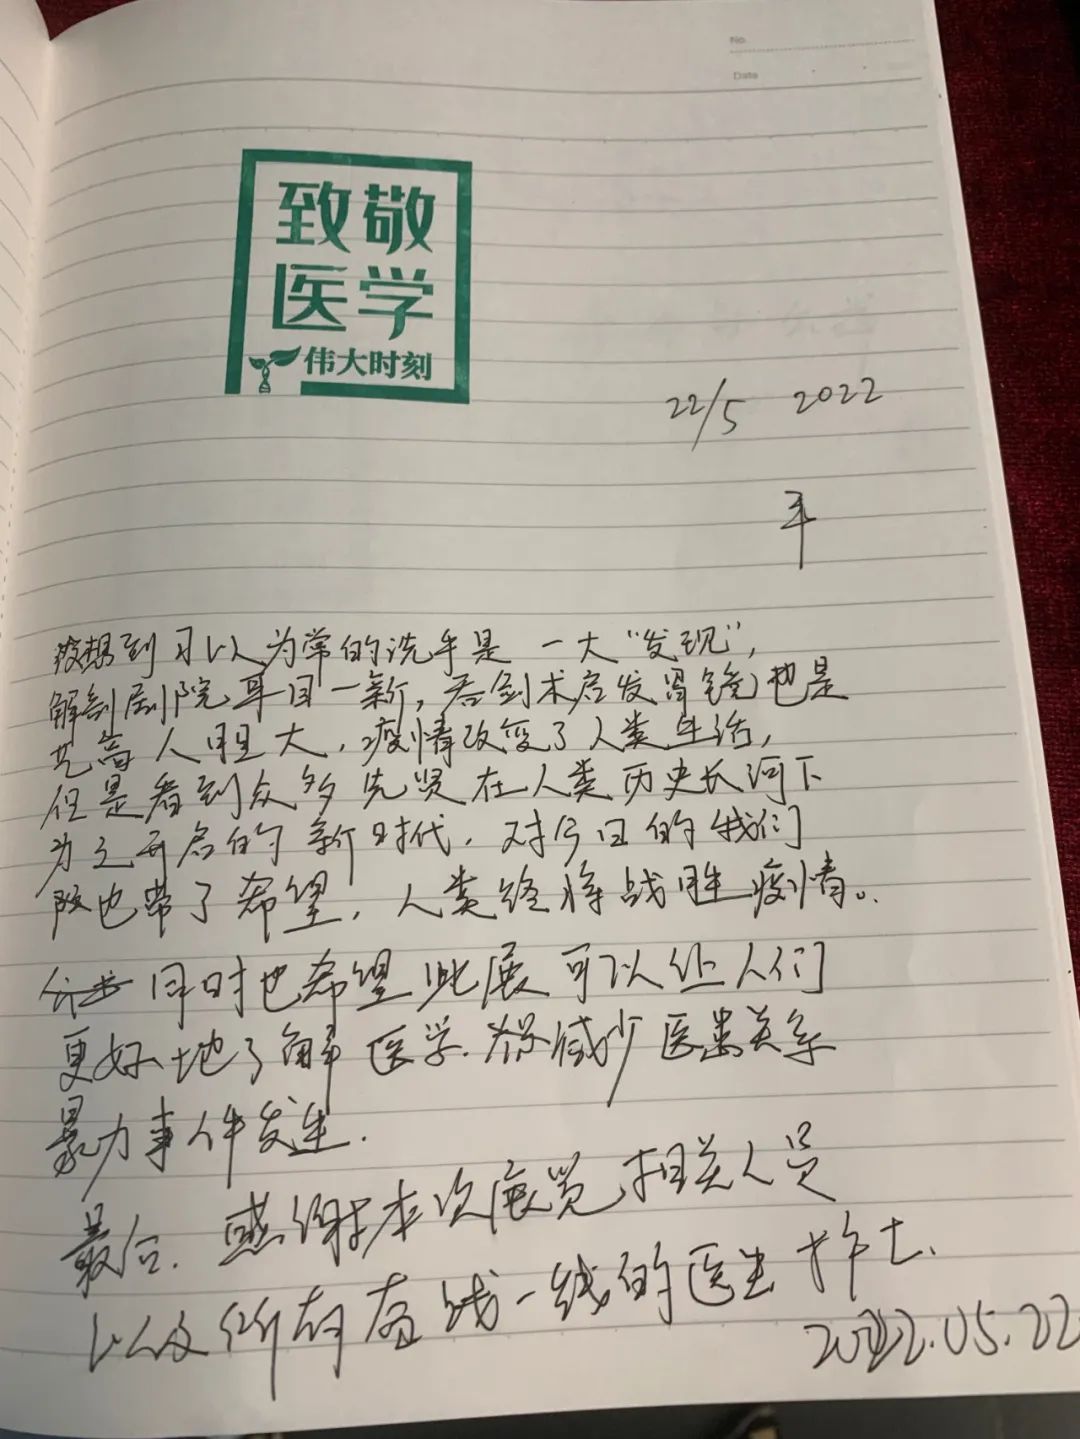 No.
Date
致敬
医学
伟大时刻
22/5 2022
没想到习以为常的洗手是一大“发现”,
解剖剧院耳目一新,吞剑术启发胃镜也是
艺高人胆大,疫情改变了人类生活,
但是看到众多先贤在人类历史长河下
为之开启的新时代,对今日的我们
也带了希望,人类终将战胜疫情。
同时也希望此展可以让人们
更好地了解医学.减少医患关系
暴力事件发生.
最后.感谢本次展览相关人员
以及所有奋战一线的医生护士.
2022.05.22